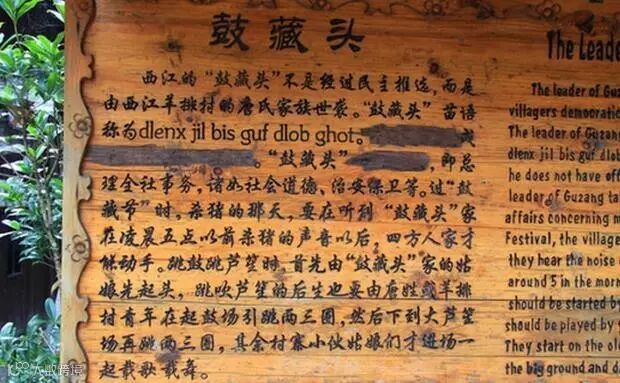 鼓藏头
西江的“鼓藏头”不是经过民主推选，而是
由西江羊排村的唐氏家族世袭。“鼓藏头”苗语
称为dlenx jil bis guf dlob ghot。 或
。“鼓藏头” ，即总
理全社事务，诸如社会道德、治安保卫等。过“鼓
藏节”时，杀猪的那天，要在听到“鼓藏头”家
在凌晨五点以前杀猪的声音以后，四方人家才
能动手。跳鼓跳芦笙时，首先由“鼓藏头”家的姑
娘先起头，跳吹芦笙的后生也要由唐姓或羊排
村青年在起鼓场引跳两三圈，然后下到大芦笙
场再跳两三圈，其余村寨小伙姑娘们才进场一
起载歌载舞。
The Leade
The leader of Guz
villagers democration
The leader of Guzang
dlenx jil bis guf dlob
he does not have off
leader of Guzang ta
affairs concerning m
Festival, the village
they hear the noise
around 5 in the morn
should be started by
should be played by
They start on the old
the big ground and d
大众点评